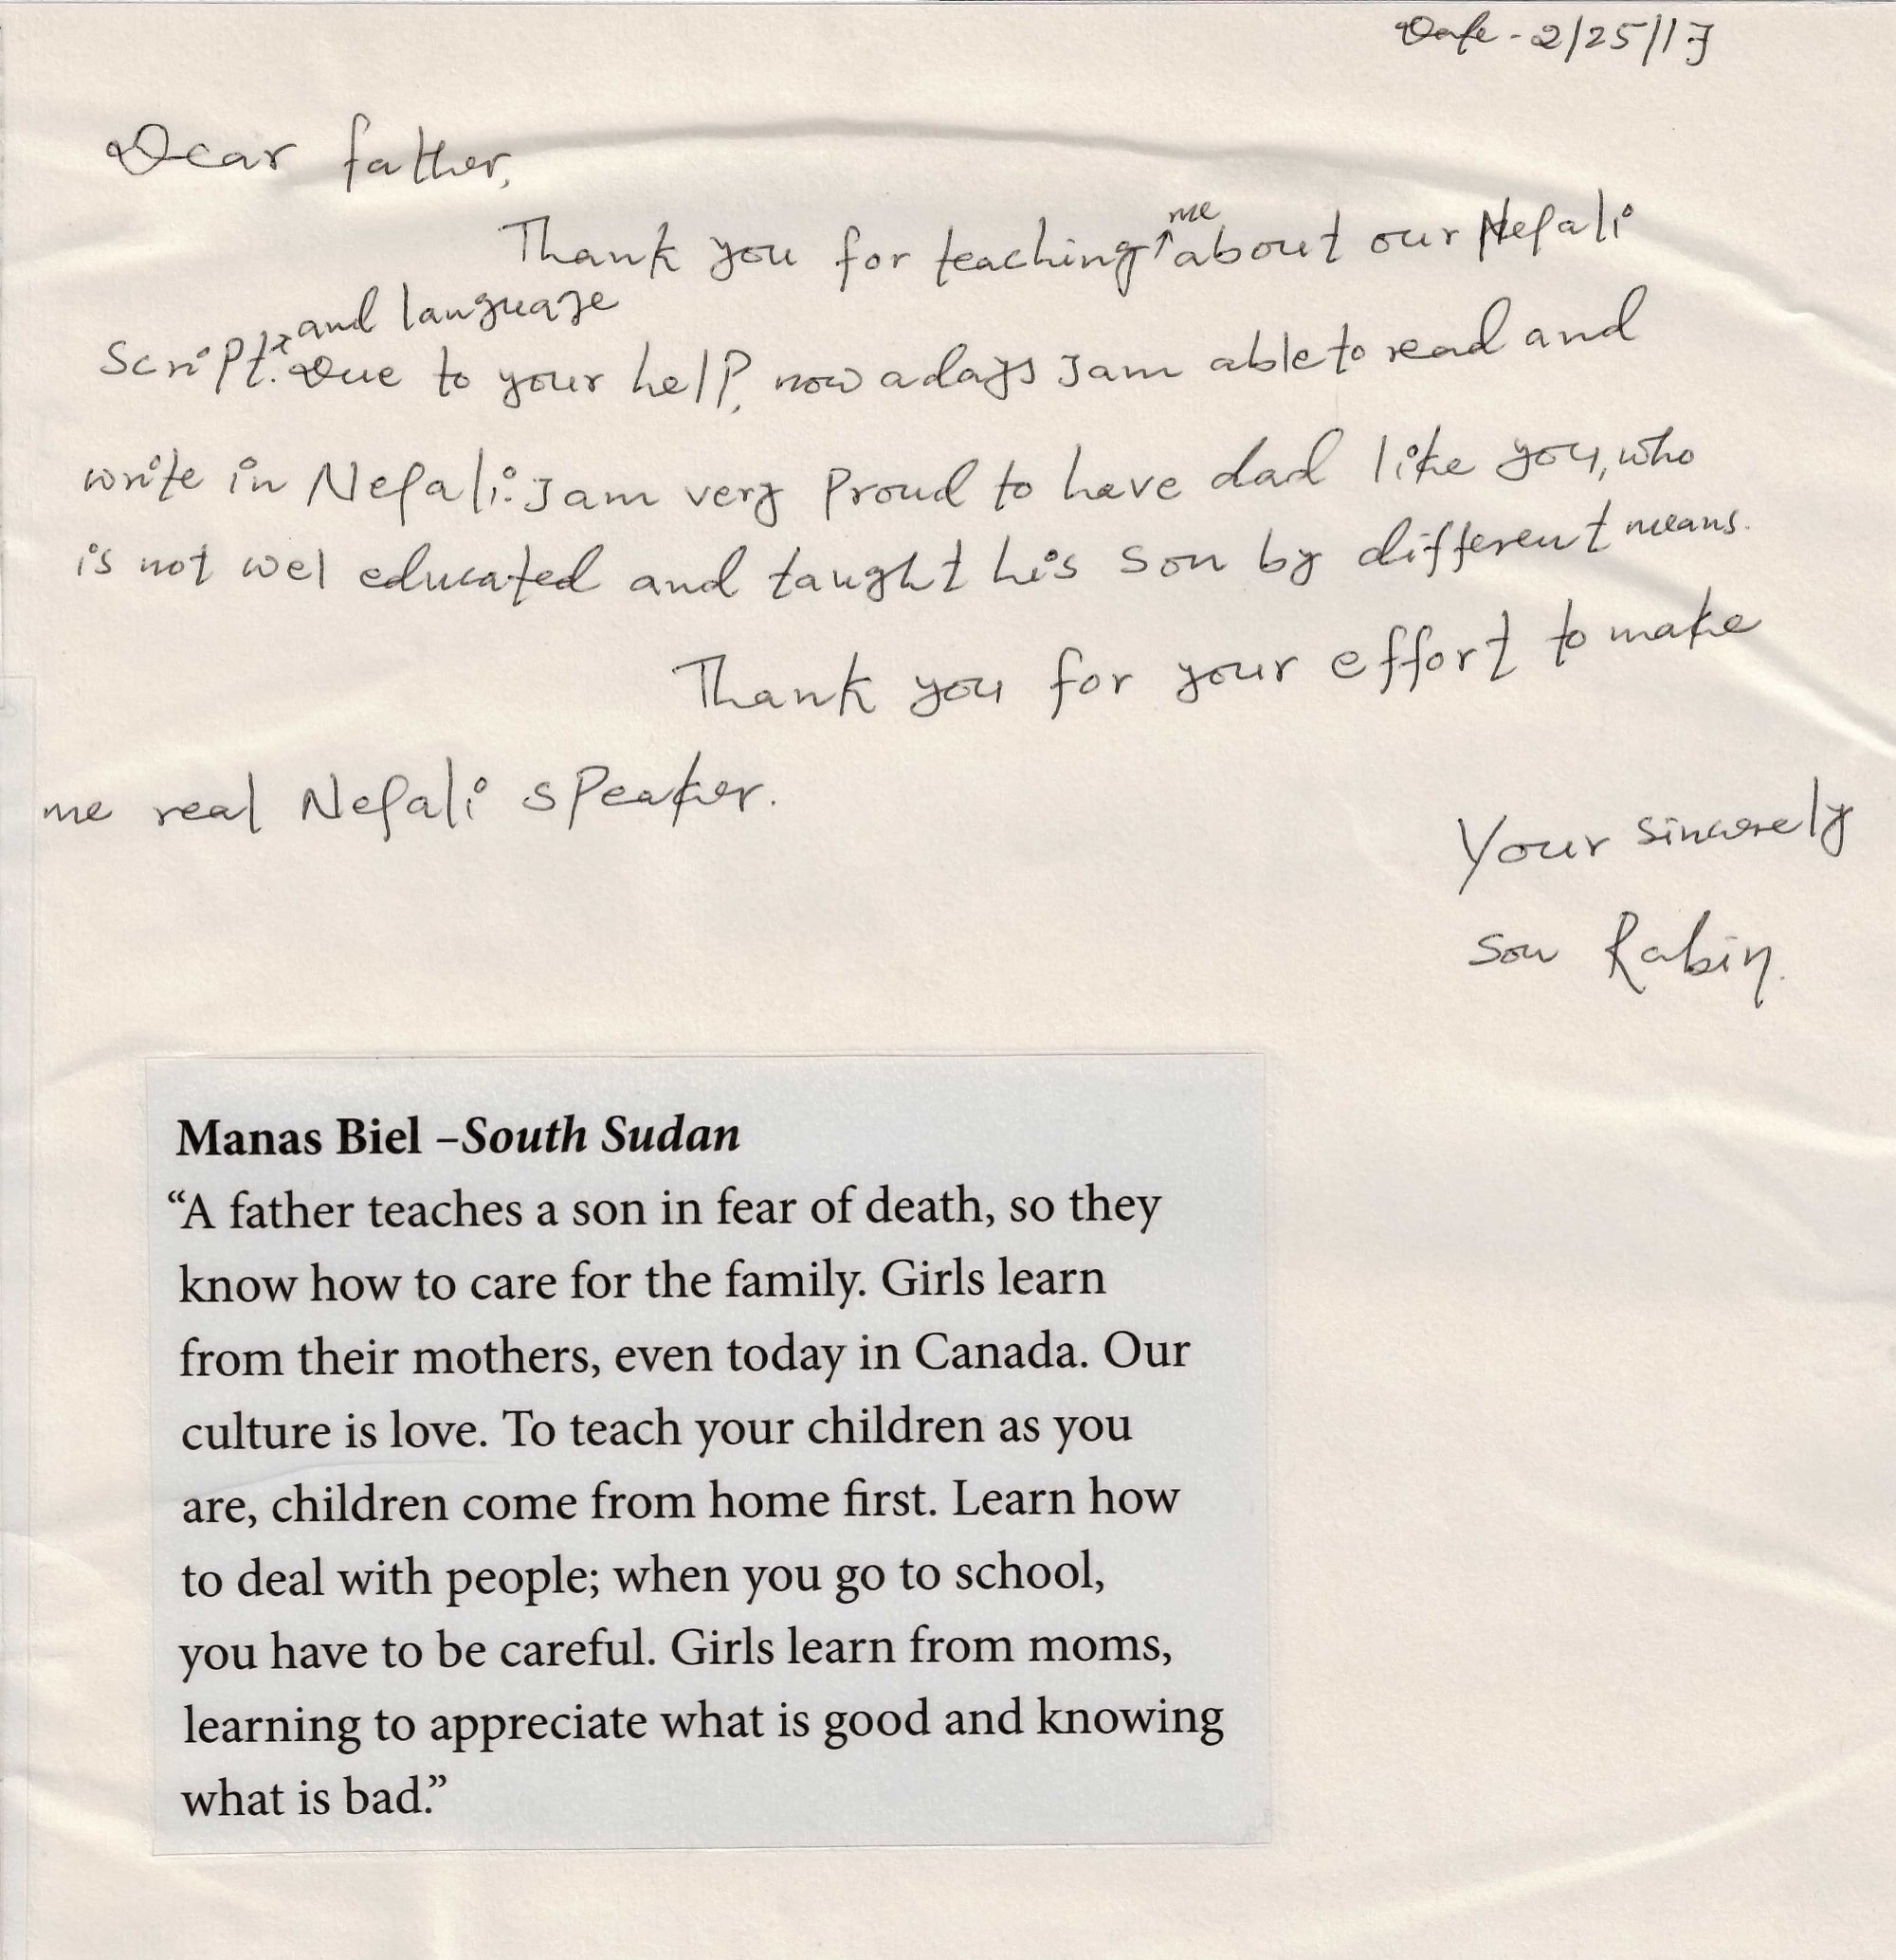 Date - 2/25/17
Dear father,
Thank you for teaching me about our Nepali
Script and language. Due to your help, now adays I am able to read and
write in Nepali. I am very proud to have dad like you, who
is not wel educated and taught his son by different means.
Thank you for your effort to make
me real Nepali speaker.
Your sincerely
son Rabin.
Manas Biel –South Sudan
“A father teaches a son in fear of death, so they
know how to care for the family. Girls learn
from their mothers, even today in Canada. Our
culture is love. To teach your children as you
are, children come from home first. Learn how
to deal with people; when you go to school,
you have to be careful. Girls learn from moms,
learning to appreciate what is good and knowing
what is bad.”